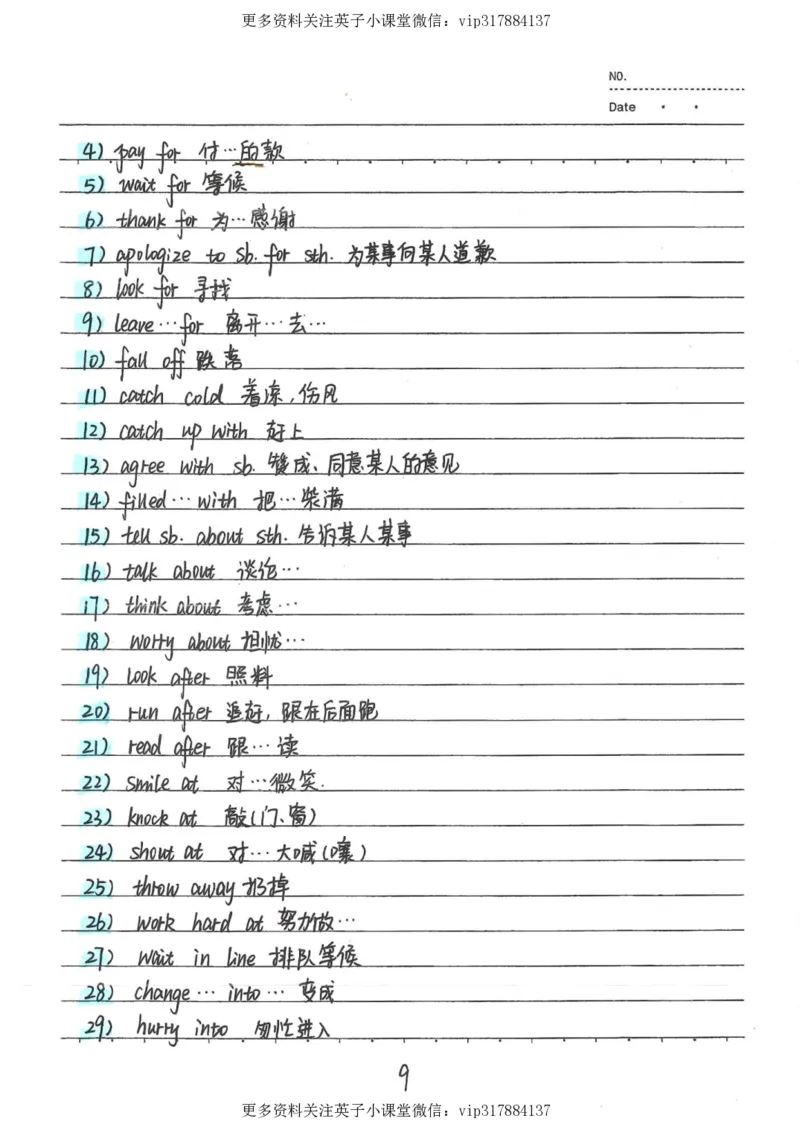 更多资料关注英子小课堂微信：vip317884137
NO.
Date
4) pay for 付…的款
5) wait for 等候
6) thank for 为…感谢
7) apologize to sb. for sth. 为某事向某人道歉
8) look for 寻找
9) leave…for 离开…去…
10) fall off 跌落
11) catch cold 着凉,伤风
12) catch up with 赶上
13) agree with sb. 赞成、同意某人的意见
14) filled…with 把…装满
15) tell sb. about sth. 告诉某人某事
16) talk about 谈论…
17) think about 考虑…
18) worry about 担忧…
19) look after 照料
20) run after 追赶, 跟在后面跑
21) read after 跟…读
22) smile at 对…微笑.
23) knock at 敲(门、窗)
24) shout at 对…大喊(嚷)
25) throw away 扔掉
26) work hard at 努力做…
27) wait in line 排队等候
28) change…into… 变成
29) hurry into 匆忙进入
9
更多资料关注英子小课堂微信：vip317884137